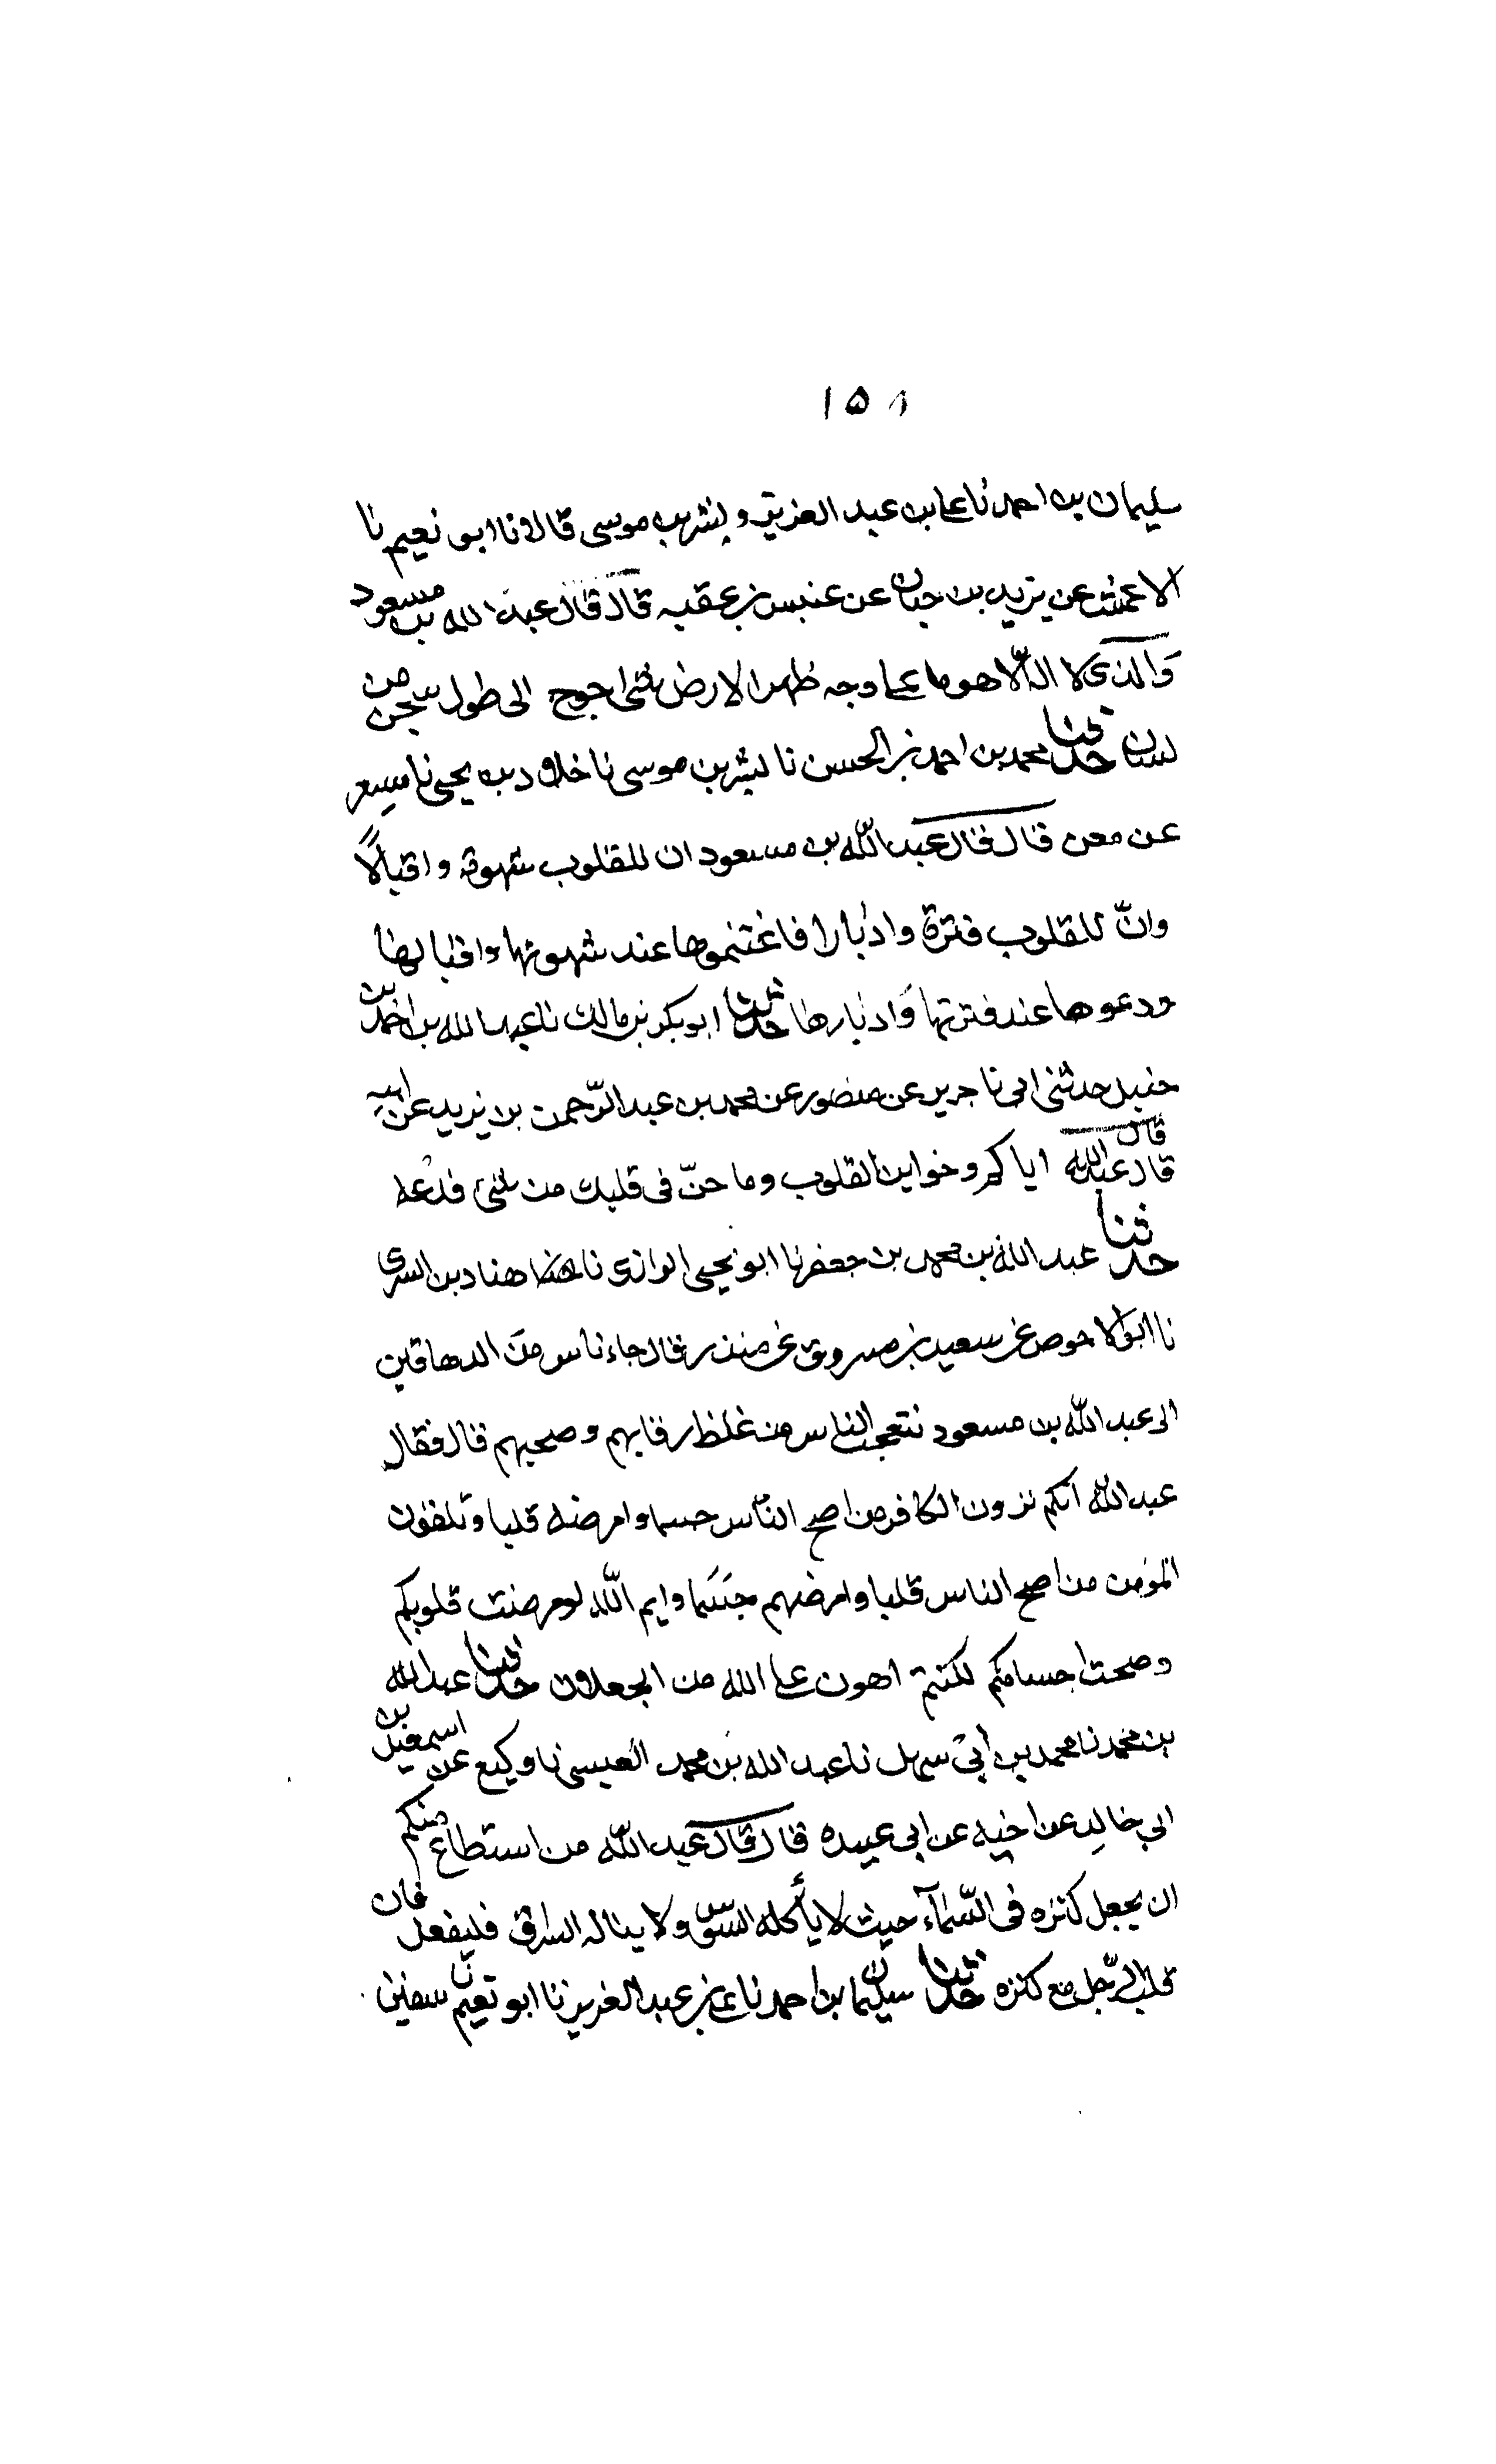 ١٥٨
سليمان بن احمد نا علی بن عبد العزيز و بشر بن موسی قالا نا ابو نعيم نا
الاعمش عن يزيد بن حيان عن عنبس بن عقبه قال قال عبد الله بن مسعود
وَالذی لا اله الّا هو ما علی وجه ظهر الارض شئ احوج الی طول سجن من
لسان حدثنا محمد بن احمد بن الحسن نا بشر بن موسی نا خلاد بن يحيی نا مسعر
عن معن قال قال عبد اللّه بن مسعود ان للقلوب شهوة و اقبالًا
وانّ للقلوب فترة وادبارا فاغتنموها عند شهوتها واقبالها
ودعوها عند فترتها وَادبارها حدثنا ابو بكر بن مالك نا عبد الله بن احمد بن
حنبل حدثنی ابی نا جرير عن منصور عن محمد بن عبد الرّحمن بن يزيد عن ابيه
قال
قال عبد الله اياكم وخواين القلوب وما حنّ فی قلبك من شئ فدعه
حدثنا عبد الله بن محمد بن جعفر نا ابو يحيی الرازی نا هنا هناد بن السری
نا ابو الاحوص عن سعيد بن مسروق عن منذر قال جاء ناس منَ الدهاقين
الی عبد اللّه بن مسعود فتعجب الناس من غلظ رقابهم وصحتهم قال فقال
عبد اللّه انكم ترون الكافر من اصح النّاس جسما وامرضه قلبا وتلقون
المؤمن من اصح الناس قلبا وامرضهم جسَما وايم اللّه لو مرضت قلوبكم
وصحت اجسامكم لكنتم اهون علی الله من الجعلان حدثنا عبد الله
بن محمد نا محمد بن ابی سهل نا عبد الله بن محمد العبسی نا وكيع عن اسمعيل بن
ابی خالدٍ عن اخيه عن ابی عبيده قال قال عبد اللّه من استطاع منكم
ان يجعل كنزه فی السّمآء حيث لا يأكله السّوس ولا يناله السراق فليفعل فان
قلب الرّجل مع كنزه حدثنا سليمان بن احمد نا علی بن عبد العزيز نا ابو نعيم نا سفين